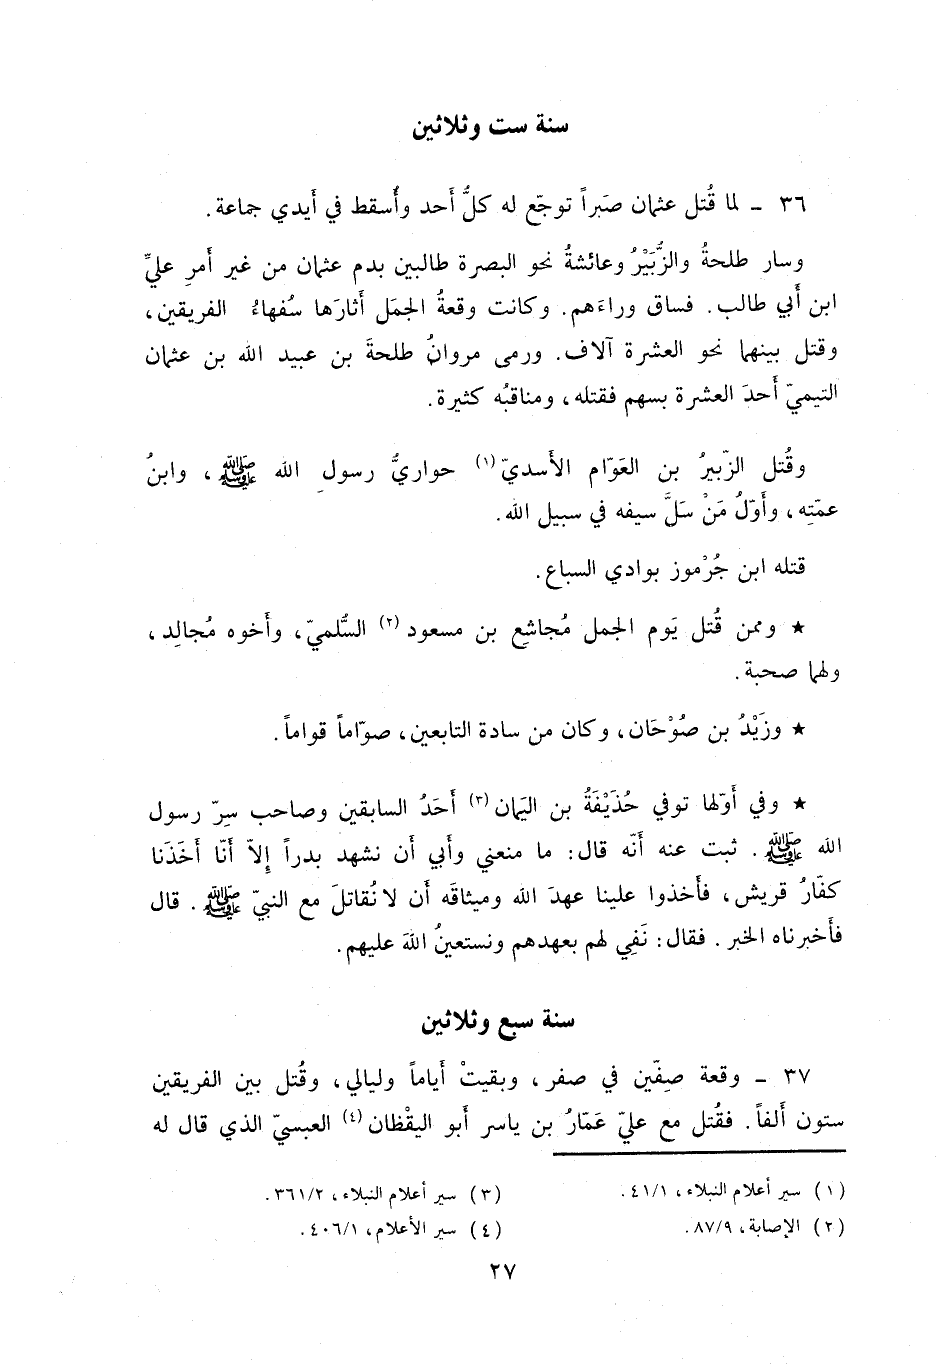 سنة ست وثلاثين
٣٦ ـ لما قُتل عثمان صَبراً توجّع له كلُّ أَحد وأُسقط في أَيدي جماعة.
وسار طلحةُ والزُّبَيْرُ وعائشةُ نحو البصرة طالبين بدم عثمان من غير أَمرِ عليِّ
ابن أَبي طالب. فساق وراءَهم. وكانت وقعةُ الجمَل أَثارَها سُفهاءُ الفريقين،
وقتل بينهما نحو العشرة آلاف. ورمى مروانُ طلحةَ بن عبيد الله بن عثمان
التيميّ أَحدَ العشرة بسهم فقتله، ومناقبُه كثيرة.
وقُتل الزّبيرُ بن العَوّام الأَسديّ (١) حواريُّ رسولِ الله ﷺ، وابنُ
عمّتِه، وأَوّلُ مَنْ سَلَّ سيفه في سبيل الله.
قتله ابن جُرْموز بوادي السباع.
★ وممن قُتل يَوم الجمل مُجاشع بن مسعود (٢) السُّلميّ، وأَخوه مُجالِد،
ولهما صحبة.
★ وزَيْدُ بن صُوْحَان، وكان من سادة التابعين، صوّاماً قواماً.
★ وفي أَوّلها توفي حُذَيْفَةُ بن اليَمان (٣) أَحَدُ السابقين وصاحب سِرّ رسول
الله ﷺ. ثبت عنه أَنّه قال: ما منعني وأَبي أَن نشهد بدراً إِلاّ أَنّا أَخَذَنا
كفّارُ قريش، فأَخذوا علينا عهدَ الله وميثاقَه أَن لا نُقاتلَ مع النبيّ ﷺ. قال
فأَخبرناه الخبر. فقال: نَفِي لهم بعهدهم ونستعينُ اللهَ عليهم.
سنة سبع وثلاثين
٣٧ ـ وقعة صِفّين في صفر، وبقيتْ أَياماً وليالي، وقُتل بين الفريقين
ستون أَلفاً. فقُتل مع عليّ عَمّارُ بن ياسر أَبو اليقْظان (٤) العبسيّ الذي قال له
(١) سير أعلام النبلاء، ٤١/١.
(٢) الإصابة، ٨٧/٩.
(٣) سير أعلام النبلاء، ٣٦١/٢.
(٤) سير الأعلام، ٤٠٦/١.
٢٧